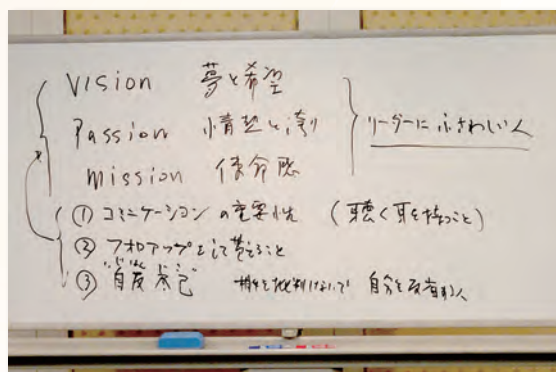 Vision 夢と希望
Passion 情熱と誇り
mission 使命感
リーダーにふさわしい人
① コミニケーションの重要性 (聴く耳を持つこと)
② フォロアップをして貰えること
③ 相手を批判しないで 自分を反省する人